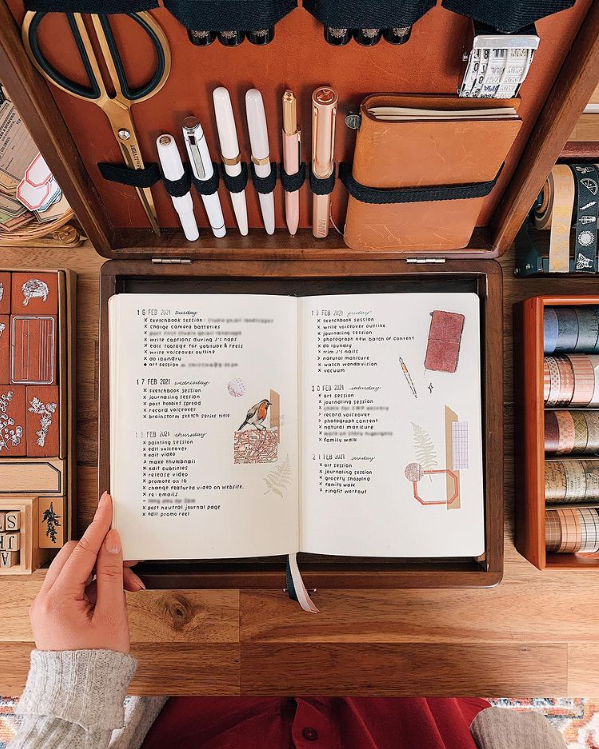 16 FEB 2021 tuesday
x sketchbook session
x change camera batteries
x write captions during J's naps
x edit footage for youtube & reels
x write voiceover outline
x do laundry
• art session
17 FEB 2021 wednesday
x sketchbook session
x journaling session
x post hobbies spread
x record voiceover
x brainstorm sketch series
FEB 2021 thursday
x painting session
x edit voiceover
x edit video
x make thumbnail
x edit subtitles
x release video
x promote on IG
x change featured video on website
x emails
x post neutral journal page
x edit promo reel
FEB 2021 friday
x sketchbook session
x write voiceover outline
x journaling session
> photograph new batch of content
x do laundry
x trim J's nails
x natural manicure
x watch wandavision
x vacuum
20 FEB 2021 saturday
x art session
x journaling session
x record voiceover
> photograph content
x natural manicure
x family walk
21 FEB 2021 sunday
x art session
x journaling session
x grocery shopping
x family walk
x ringfit workout